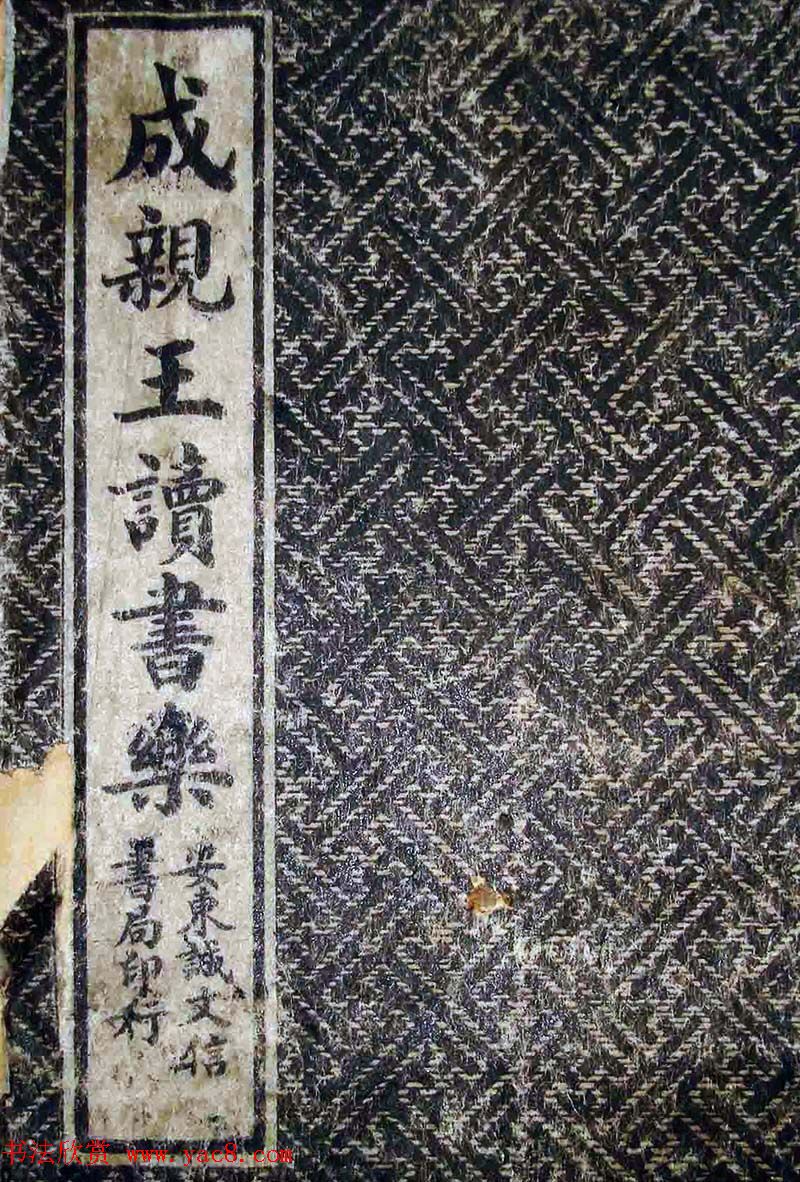 成親王讀書樂
安東誠文信
書局印行
书法欣赏 www.yac8.com